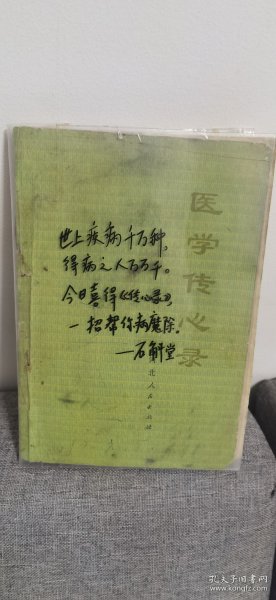 医学传心录
世上疾病千万种，
得病之人百万千。
今日喜得《传心录》，
一招帮你病魔除，
—石斛堂
北人民出版社
孔夫子旧书网